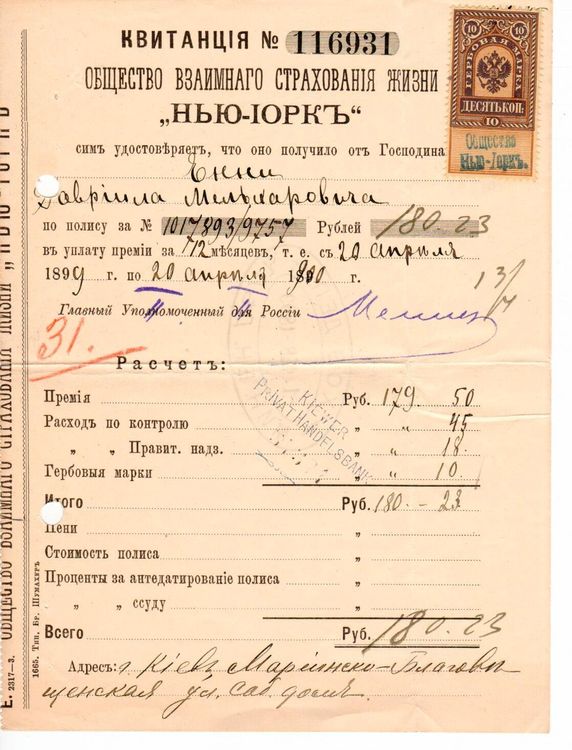 КВИТАНЦІЯ № 116931
ОБЩЕСТВО ВЗАИМНАГО СТРАХОВАНІЯ ЖИЗНИ
„НЬЮ-ІОРКЪ“
ГЕРБОВАЯ МАРКА
10 10
ДЕСЯТЬ КОП.
10
Общество
Нью-Іоркъ.
симъ удостовѣряетъ, что оно получило отъ Господина
Енни
Гавріила Мельхаровича
по полису за № 1017893/9757 Рублей 180.23
въ уплату преміи за 12 мѣсяцевъ, т. е. съ 20 апрѣля
1899 г. по 20 апрѣля 1900 г.
13/
Главный Уполномоченный для Россіи
31.
Расчетъ:
KIEWER
PRIVAT HANDELSBANK
Премія Руб. 179 50
Расходъ по контролю „ „ 45
„ „ Правит. надз. „ „ 18.
Гербовыя марки „ „ 10.
Итого Руб. 180.-23
Пени „
Стоимость полиса „
Проценты за антедатированіе полиса „
„ „ ссуду „
Всего Руб. 180.23
Адресъ: г. Кіевъ Маріинско-Благовѣ
щенская ул. соб. домъ.
ОБЩЕСТВО ВЗАИМНАГО СТРАХОВАНІЯ ЖИЗНИ „НЬЮ-ІОРКЪ“
Е. 2317—3.
1665. Тип. Бр. Шумахеръ